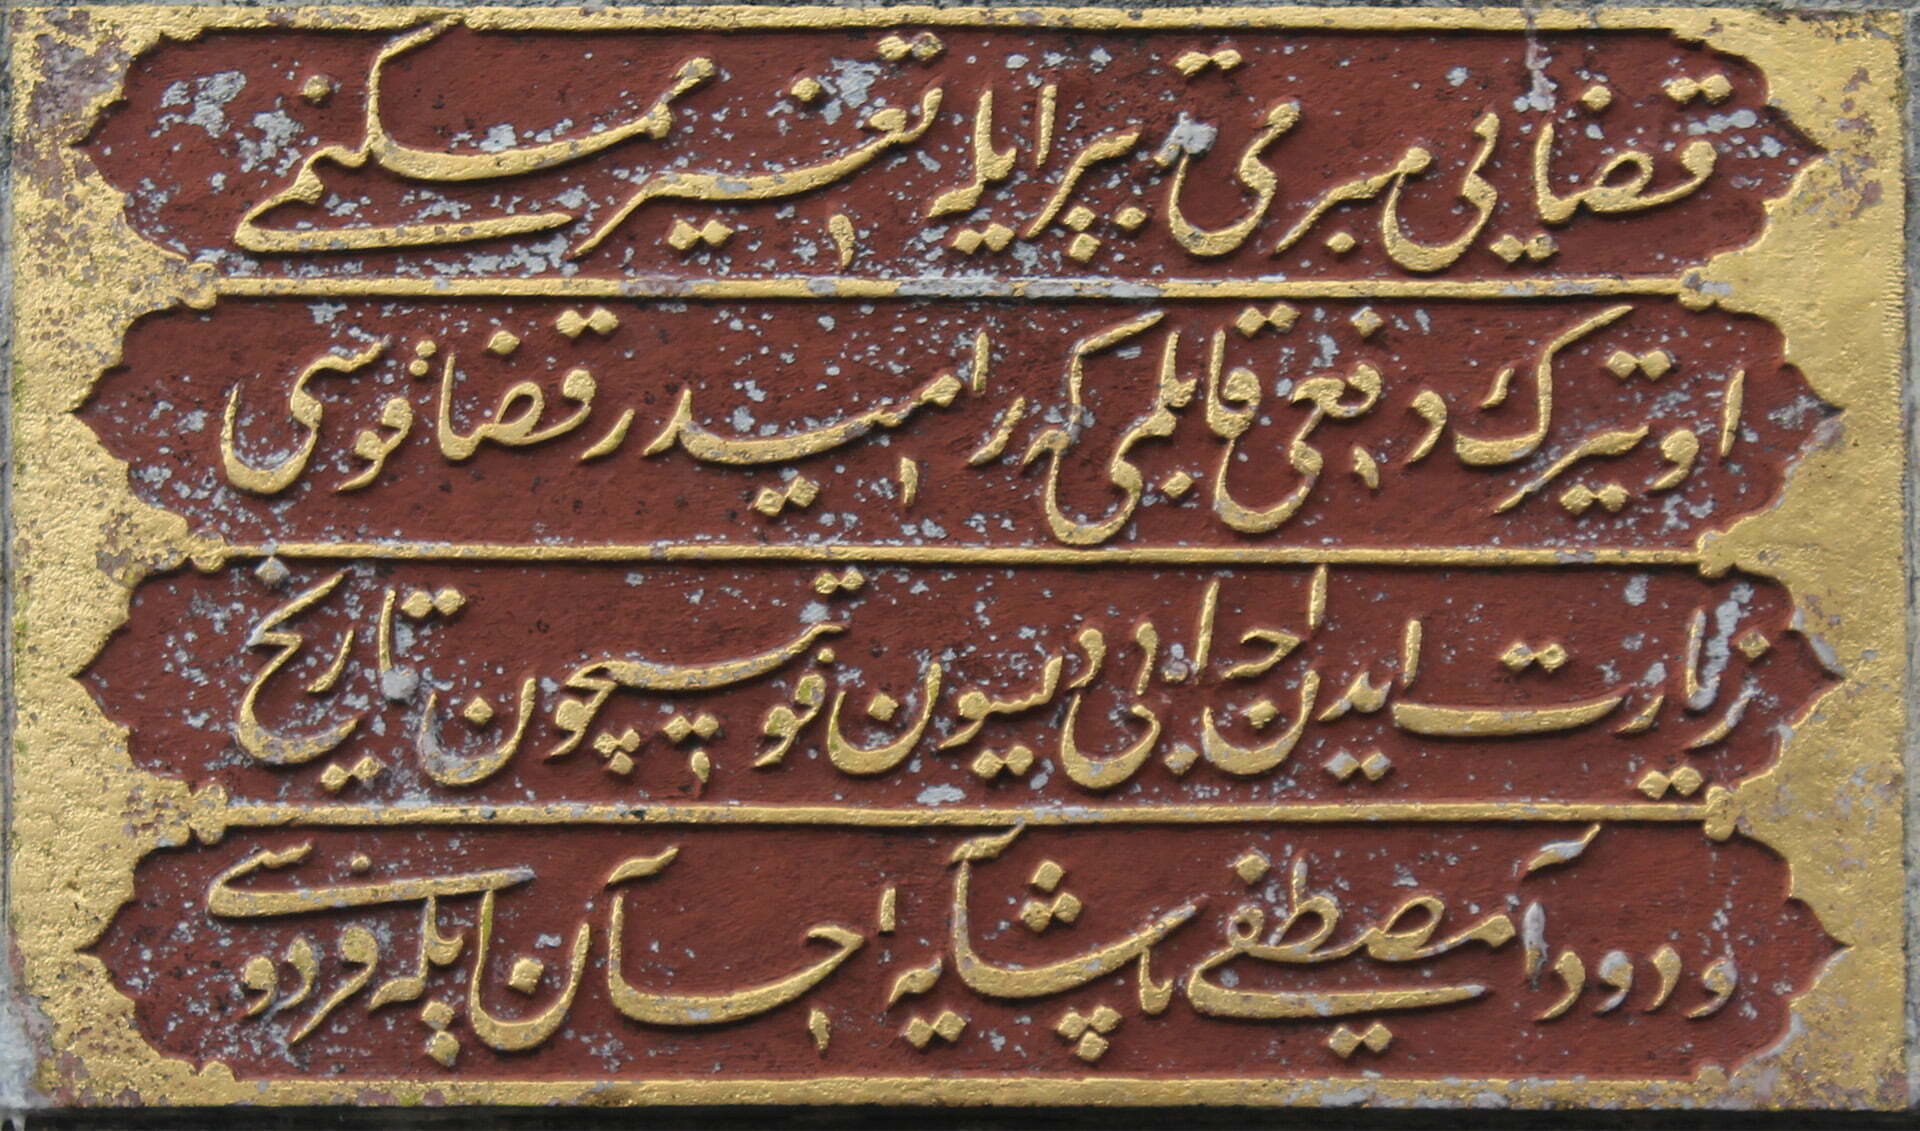 قضایی مبرمی تدبیر ایله تغییر ممکنمی
اوتیرک دفعی قابلمی که رامیدر قضا قوسی
زیارت ایدن احبابی دیسون فوتیچون تاریخ
ورود مصطفی پاشایه احسان ایله فردوسی